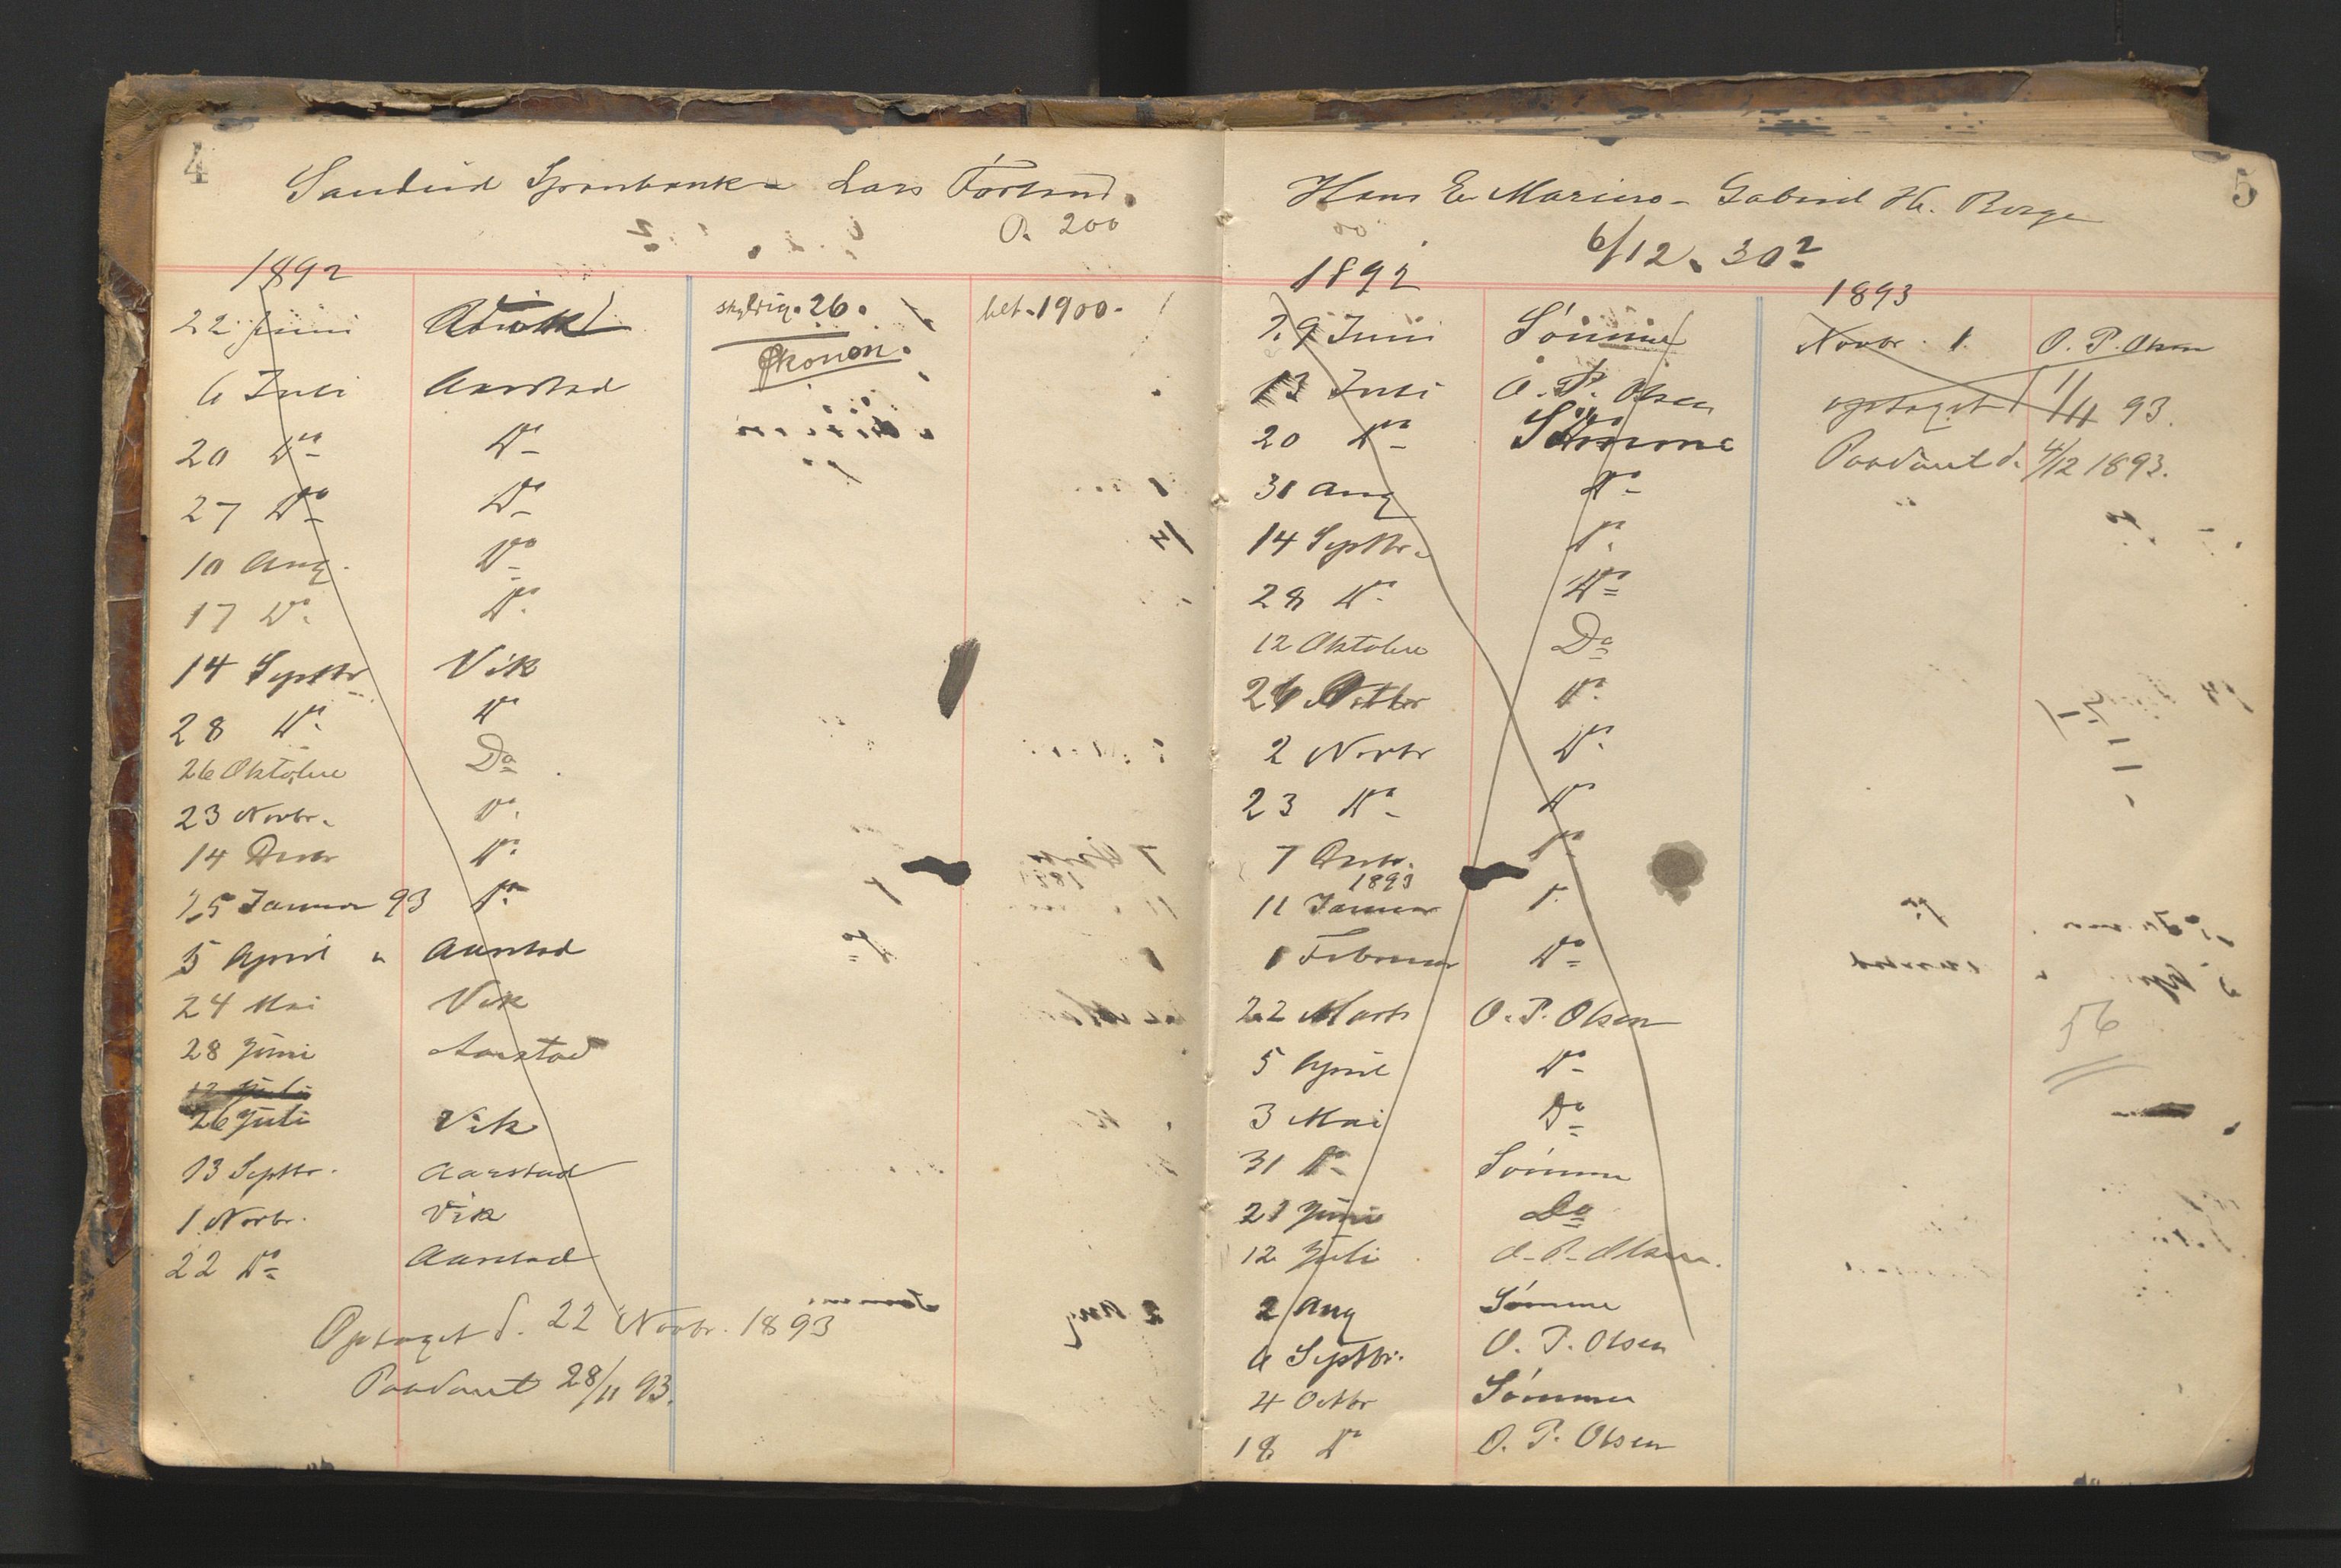 4
Lars
P. 200
1892
22 Juni
skyldig. 26.
bet. 1900.
Økonon.
6 Juli Aarstad
20 Do Do
27 Do Do
10 Aug. Do
17 Do. Do.
14 Septbr Vik
28 Do. Do
26 Oktobre Do
23 Novbr. Do.
14 Decbr Do.
25 Januar 93 Do
5 April " Aarstad
24 Mai Vik
28 Juni Aarstad
12 Juli
26 Juli Vik
13 Septbr. Aarstad
1 Novbr. Vik
22 Do Aarstad
Optaget d. 22 Novbr. 1893
Paadømt 28/11 93.
5
Hans E Mariero - Gabriel H. Berge
6/12. 30
1892
29 Juni Sømme
13 Juli O. P. Olsen
20 Do Sømme
31 Aug Do
14 Septbr. Do.
28 Do. Do
12 Oktobre Do
26 Do.
2 Novbr Do.
23 Do Do
7 Decbr. Do
1893
11 Januar Do.
1 Februar Do
22 Marts O. P. Olsen
5 April Do
3 Mai Do
31 Do Sømme
21 Juni Do
12 Juli O. P. Olsen.
2 Aug Sømme
6 Septbr. O. P. Olsen
4 Octbr Sømme
18 Do O. P. Olsen
1893
Novbr. 1. O. P. Olsen
optaget d 1/11 93.
Paadømt d. 4/12 1893.
56